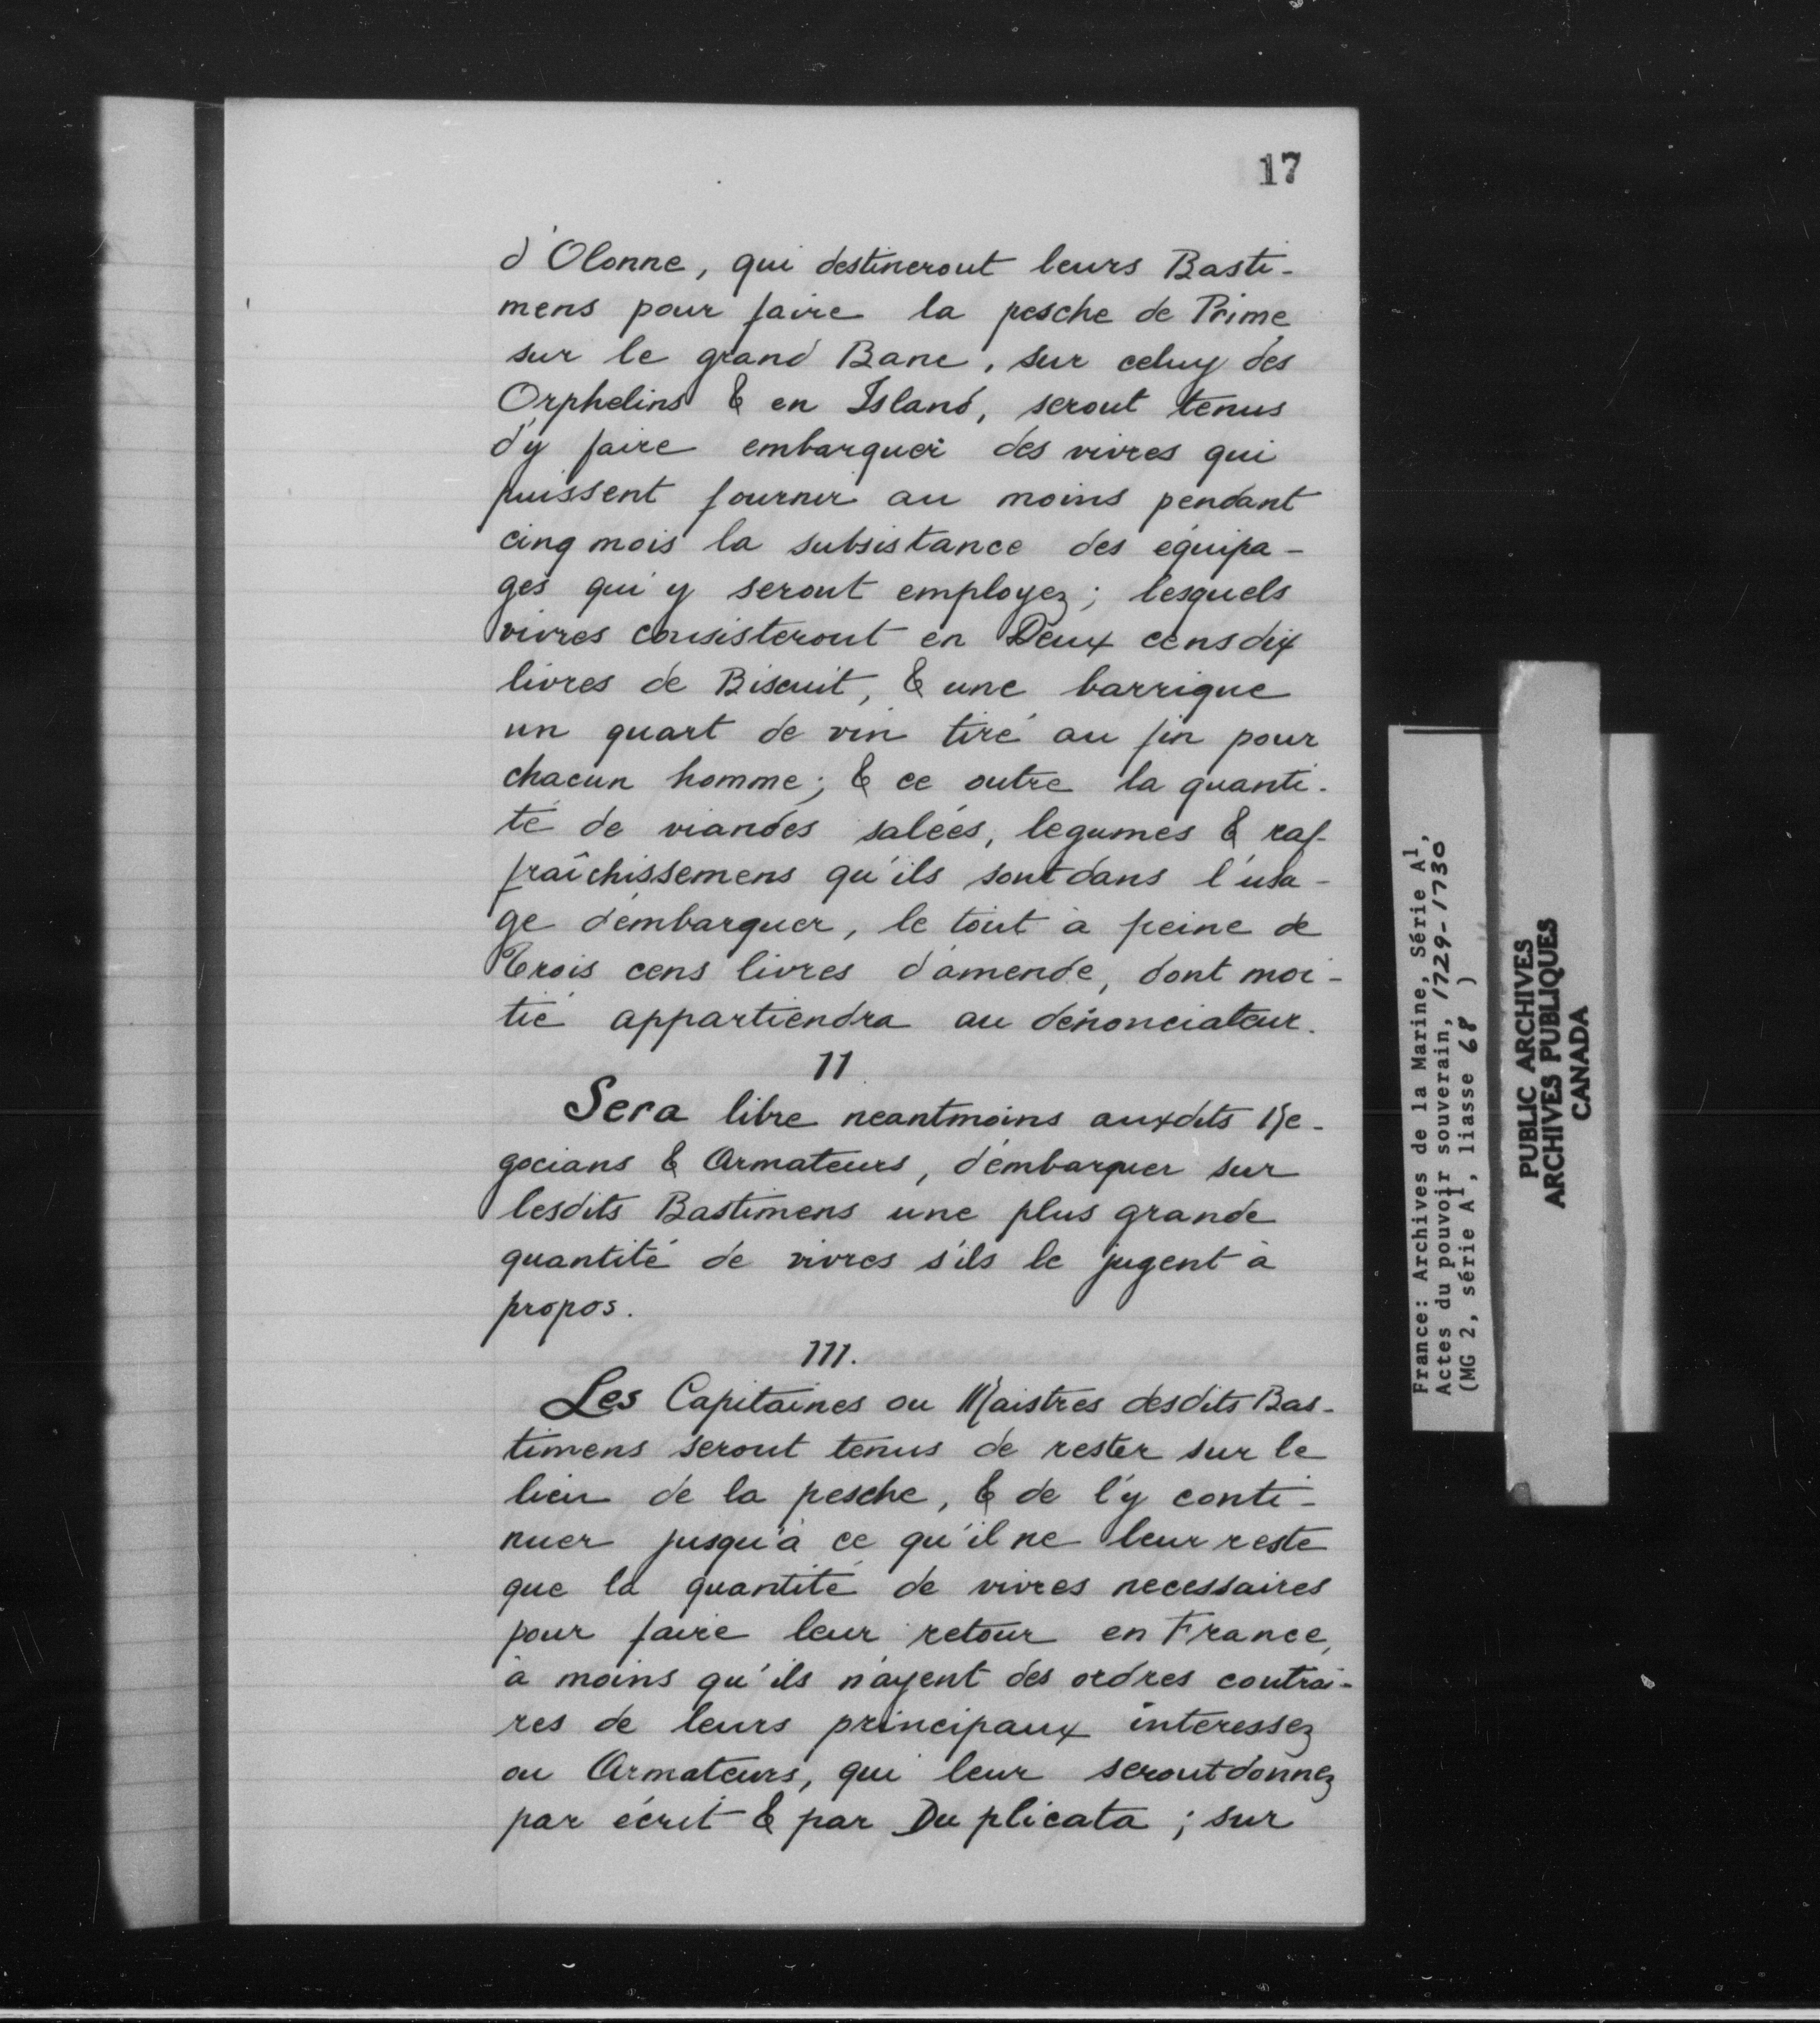 17
d'Olonne, qui destineront leurs Basti-
mens pour faire la pesche de Prime
sur le grand Banc, sur celuy des
Orphelins & en Island, seront tenus
d'y faire embarquer des vivres qui
puissent fournir au moins pendant
cinq mois la subsistance des équipa-
ges qui y seront employez; lesquels
vivres consisteront en Deux cens dix
livres de Biscuit, & une barrique
un quart de vin tiré au fin pour
chacun homme; & ce outre la quanti-
té de viandes salées, legumes & raf-
fraîchissemens qu'ils sont dans l'usa-
ge d'embarquer, le tout à peine de
Trois cens livres d'amende, dont moi-
tié appartiendra au dénonciateur.
11
Sera libre neantmoins auxdits Ne-
gocians & Armateurs, d'embarquer sur
lesdits Bastimens une plus grande
quantité de vivres s'ils le jugent à
propos.
111.
Les Capitaines ou Maistres desdits Bas-
timens seront tenus de rester sur le
lieu de la pesche, & de l'y conti-
nuer jusqu'à ce qu'il ne leur reste
que la quantité de vivres necessaires
pour faire leur retour en France,
à moins qu'ils n'ayent des ordres contrai-
res de leurs principaux interessez
ou Armateurs, qui leur seront donnez
par écrit & par Duplicata; sur
France: Archives de la Marine, Série A1,
Actes du pouvoir souverain, 1729-1730
(MG 2, série A1, liasse 68 )
PUBLIC ARCHIVES
ARCHIVES PUBLIQUES
CANADA